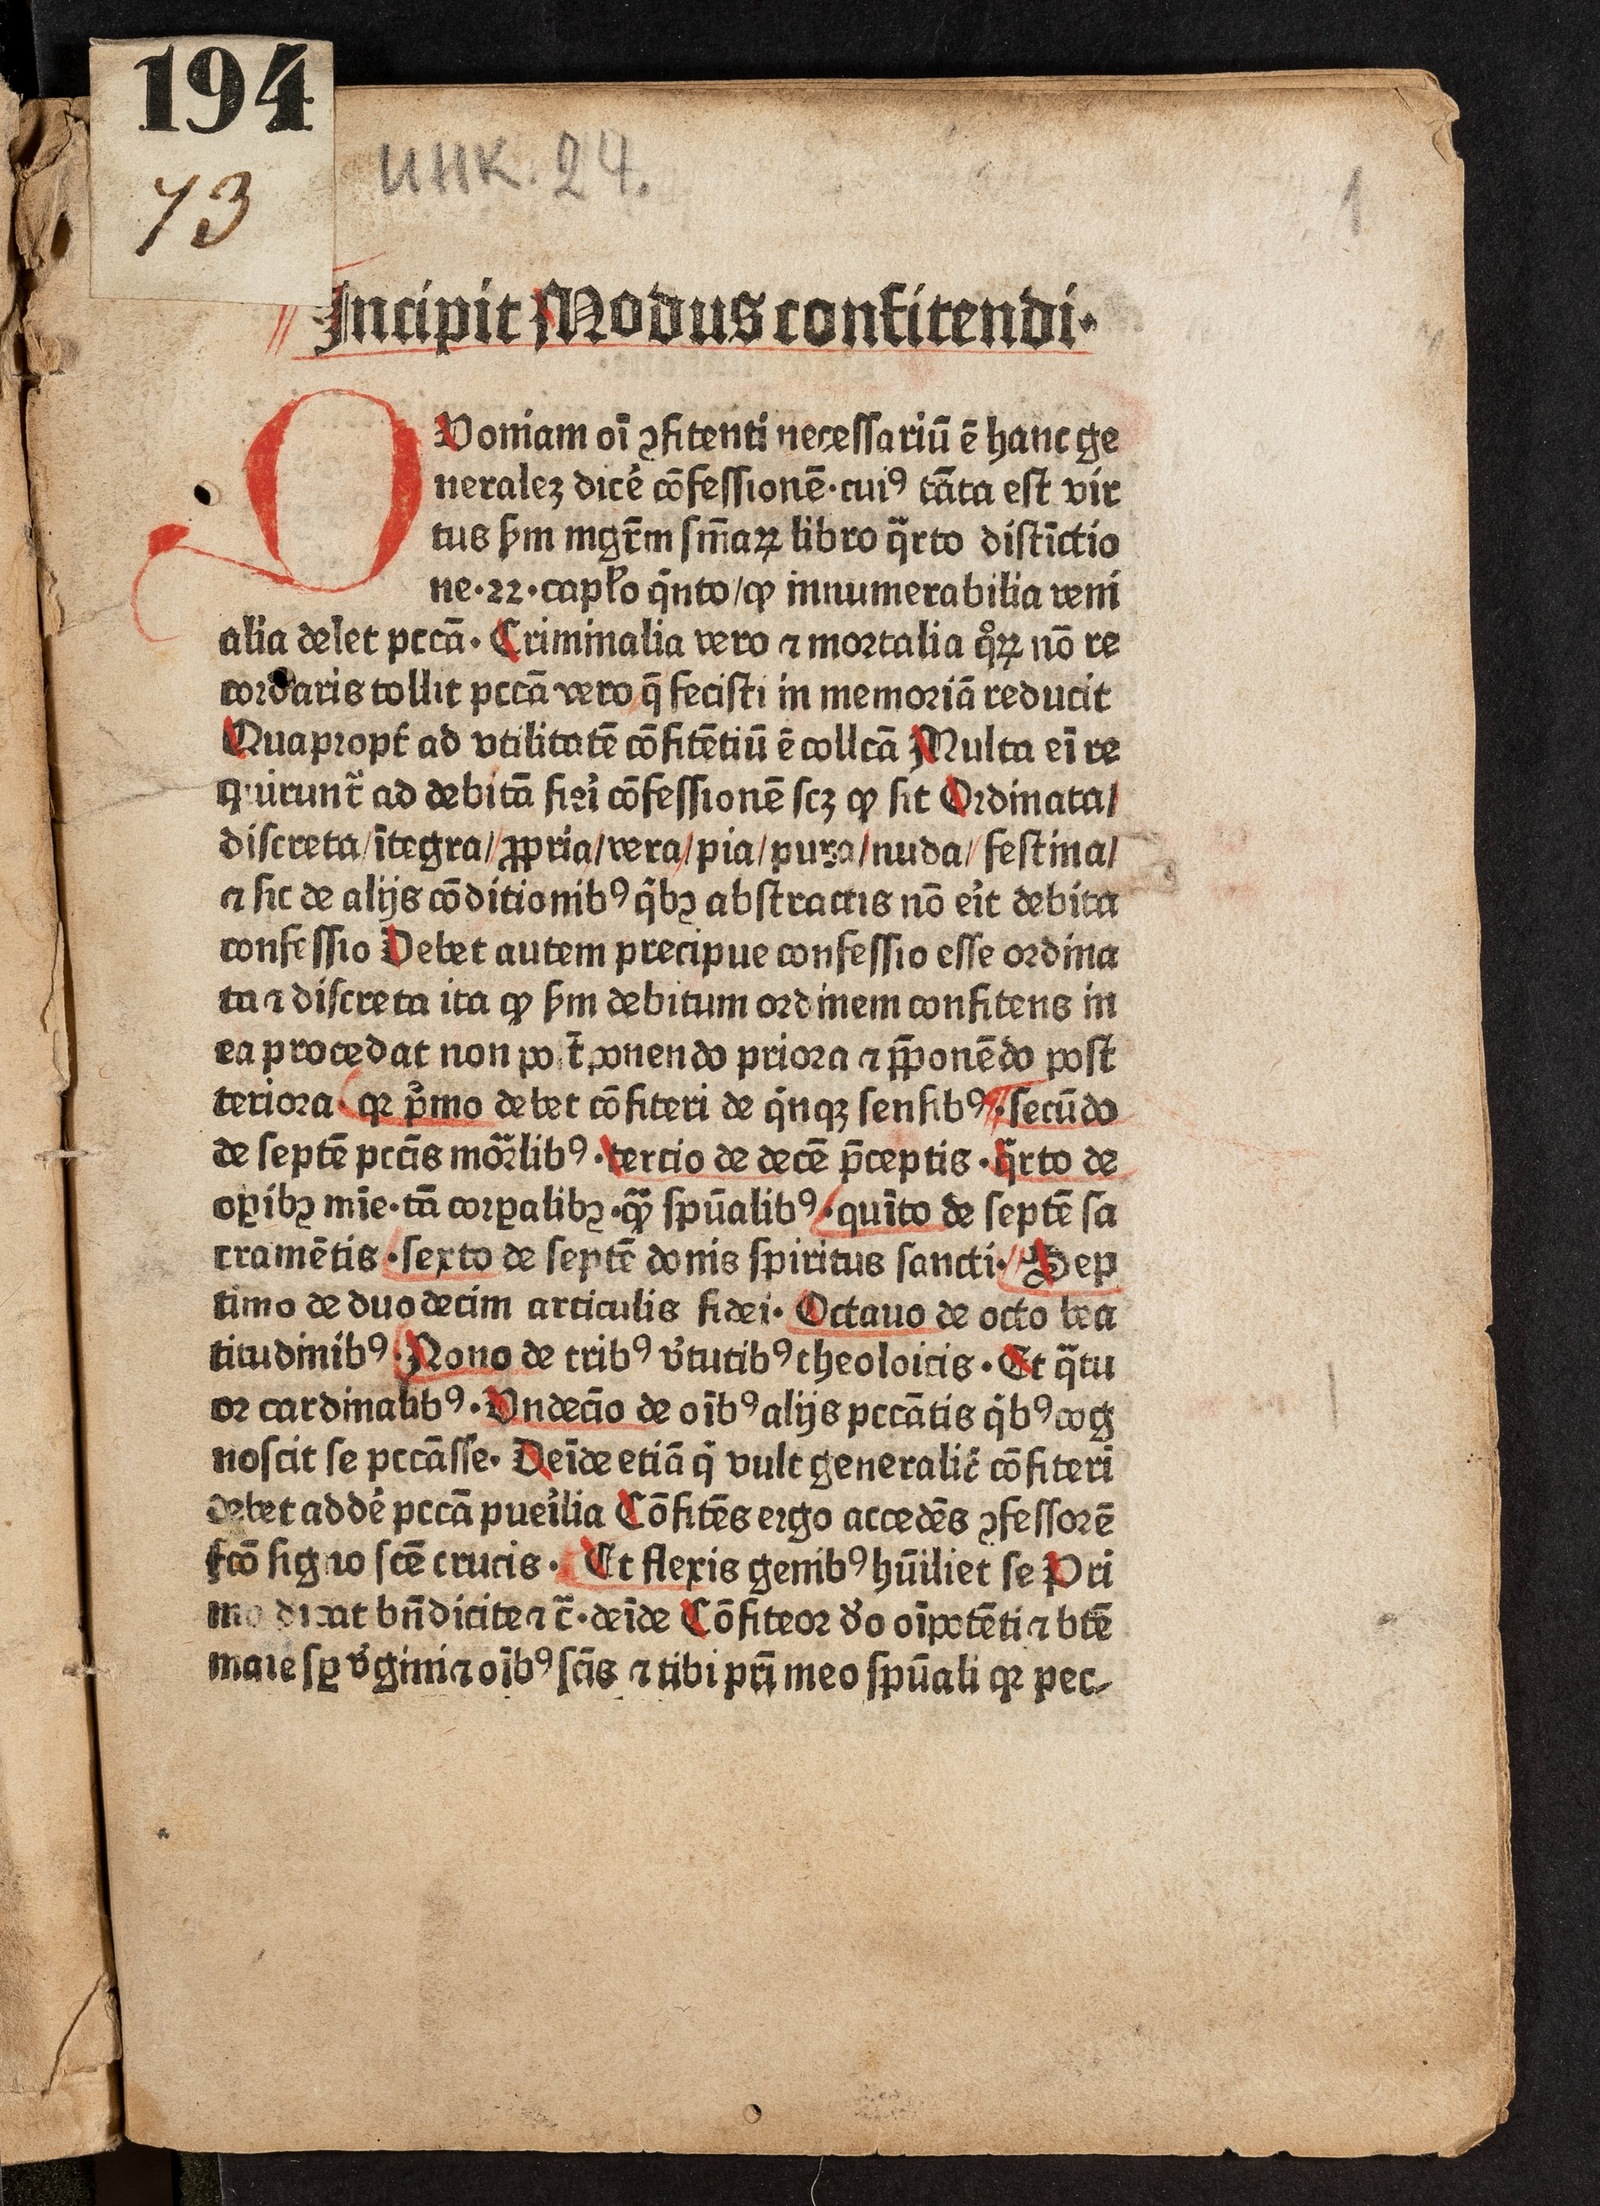 194
73
инк. 24.
1
Incipit Modus confitendi·
QUoniam oı̄ ꝯfitenti necessariū ē hanc ge
neralez dicẽ cōfessionē·cuiꝰ tāta est vir
tus ẜm mgr̄m sm̄aꝝ libro qͣrto distīctio
ne·22·capło qͥnto/ꝙ innumerabilia veni
alia delet pccā· Criminalia vero ⁊ mortalia qͦꝝ nō re
cordaris tollit pccā vero q̄ fecisti in memoriā reducit
Quapropt̉ ad vtilitatē cōfitētiū ē collcā Multa eı̄ re
quirunt᷑ ad debitā fieri cōfessionē scꝫ ꝙ sit Ordinata/
discreta/ītegra/ꝓpria/vera/pia/pura/nuda/festina/
⁊ sic de alijs cōditionibꝰ qͥbꝫ abstractis nō eı̉t debita
confessio Debet autem precipue confessio esse ordina
ta ⁊ discreta ita ꝙ ẜm debitum ordinem confitens in
ea procedat non po t̄ponendo priora ⁊ p̄ponēdo post
teriora· qꝛ pͥmo debet cōfiteri de qͥnqꝫ sensibꝰ·secūdo
de septē pccı̄s moꝛͣlibꝰ·tercio de decē p̄ceptis·qͣrto de
oꝑibꝫ mı̄e·tā corꝑalibꝫ·qͣꝫ spūalibꝰ·quīto de septē sa
cramētis·sexto de septē donis spiritus sancti· Sep
timo de duodecim articulis fidei· Octauo de octo bea
titudinibꝰ·Nono de tribꝰ v̉tutibꝰ theoloicis·Et qͣtu
or cardinalibꝰ·Undecı̄o de oı̄bꝰ alijs pccātis qͥbꝰ cog
noscit se pccāsse· Deīde etiā qͥ vult generalit̉ cōfiteri
debet addẽ pccā puerilia Cōfitēs ergo accedēs ꝯfessorē
fcō signo scē crucis· Et flexis genibꝰ hūiliet se Pri
mo dicat bn̄dicite ⁊ c̄·deīde Cōfiteor d̉o oīpotēti ⁊ btē
marie sꝑ v̉gini ⁊ oı̄bꝰ scı̄s ⁊ tibi pr̄i meo spūali qꝛ pec⸗